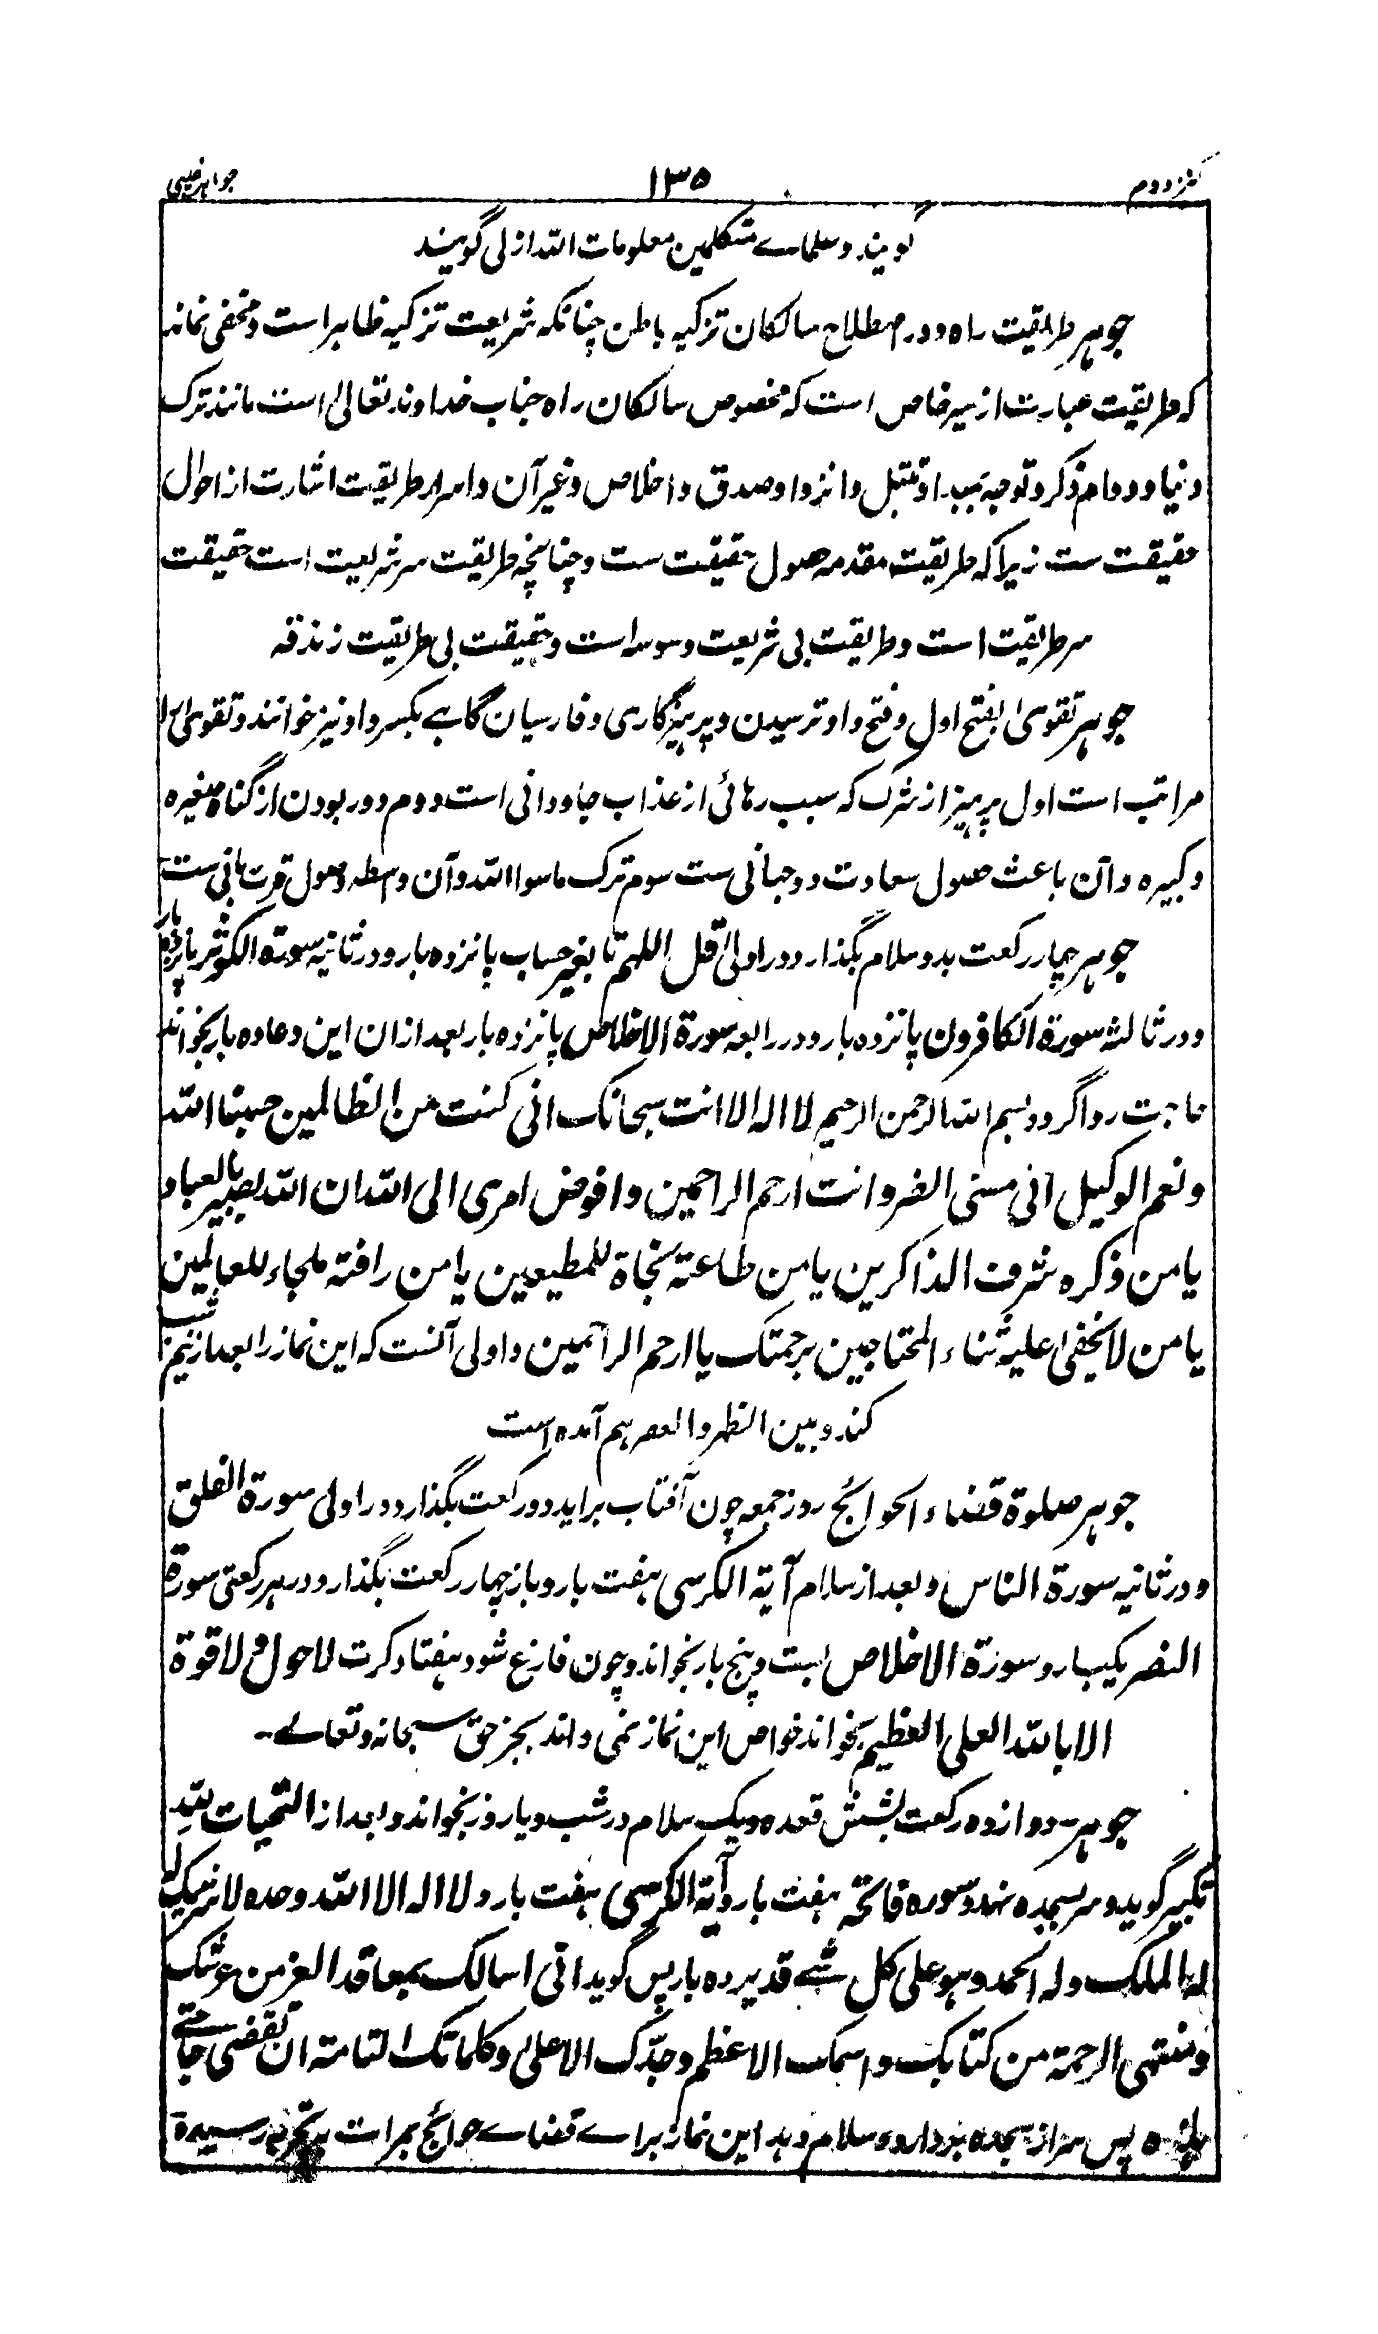 کنز دوم ۱۳۵ جواہر غیبی
گویند و علماے متکلمین معلومات اللہ ازلی گویند
جوہر طریقت راہ و در اصطلاح سالکان تزکیہ باطن چنانکہ شریعت تزکیہ ظاہر است و مخفی نماند
کہ طریقت عبارت از سیر خاص است کہ مخصوص سالکان راہ جناب خداوند تعالیٰ است مانند ترک
دنیا و دوام ذکر و توجہ بمبدا و تبتل و انزوا و صدق و اخلاص و غیر آن و اسرار طریقت اشارت از احوال
حقیقت ست زیرا کہ طریقت مقدمہ حصول حقیقت ست و چنانچہ طریقت سر شریعت است حقیقت
سر طریقت است و طریقت بی شریعت وسوسہ است و حقیقت بی طریقت زندقہ
جوہر تقویٰ بفتح اول و فتح واو ترسیدن و پرہیزگاری و فارسیان گاہے بکسر واو نیز خوانند و تقویٰ را
مراتب است اول پرہیز از شرک کہ سبب رہائی از عذاب جاودانی است دوم دور بودن از گناہ صغیرہ
و کبیرہ و آن باعث حصول سعادت دوجہانی ست سوم ترک ماسوا اللہ و آن واسطہ وصول قربت ربانی ست
جوہر چہار رکعت بدو سلام بگذارد در اولیٰ قل اللہم تا بغیر حساب پانزدہ بار و در ثانیہ سورۃ الکوثر پانزدہ بار
و در ثالثہ سورۃ الکافرون پانزدہ بار و در رابعہ سورۃ الاخلاص پانزدہ بار بعد ازان این دعا دہ بار بخواند
حاجت روا گردد بسم اللہ الرحمن الرحیم لا الہ الا انت سبحانک انی کنت من الظالمین حسبنا اللہ
و نعم الوکیل انی مسنی الضر و انت ارحم الراحمین و افوض امری الی اللہ ان اللہ بصیر بالعباد
یا من ذکرہ شرف الذاکرین یا من طاعتہ نجاۃ للمطیعین یا من رافتہ ملجاء للعالمین
یا من لا یخفیٰ علیہ ثناء المحتاجین برحمتک یا ارحم الراحمین و اولی آنست کہ این نماز را بعد از نیم شب
کند و بین الظہر والعصر ہم آمدہ است
جوہر صلوۃ قضاء الحوائج روز جمعہ چون آفتاب براید دو رکعت بگذارد در اولی سورۃ الفلق
و در ثانیہ سورۃ الناس و بعد از سلام آیۃ الکرسی ہفت بار و باز چہار رکعت بگذارد و در ہر رکعتی سورۃ
النصر یکبار و سورۃ الاخلاص بست و پنج بار بخواند و چون فارغ شود ہفتاد کرت لاحول و لا قوۃ
الا باللہ العلی العظیم بخواند خواص این نماز نمی داند بجز حق سبحانہ و تعالے۔
جوہر۔ دوازدہ رکعت بشش قعدہ و یک سلام در شب و یا روز بخواند و بعد از التحیات للہ
تکبیر گوید و سر بسجدہ نہد و سورہ فاتحہ ہفت بار و آیۃ الکرسی ہفت بار و لا الہ الا اللہ وحدہ لا شریک لہ
لہ الملک ولہ الحمد وہو علی کل شے قدیر دہ بار پس گوید انی اسالک بمعاقد العز من عرشک
و منتہی الرحمۃ من کتابک و اسمک الاعظم و جدک الاعلیٰ و کلماتک التامتہ ان تقضی حاجتے
پس سر از سجدہ بردارد و سلام دہد این نماز براے قضاے حوائج بمرات بتجربہ رسیدہ